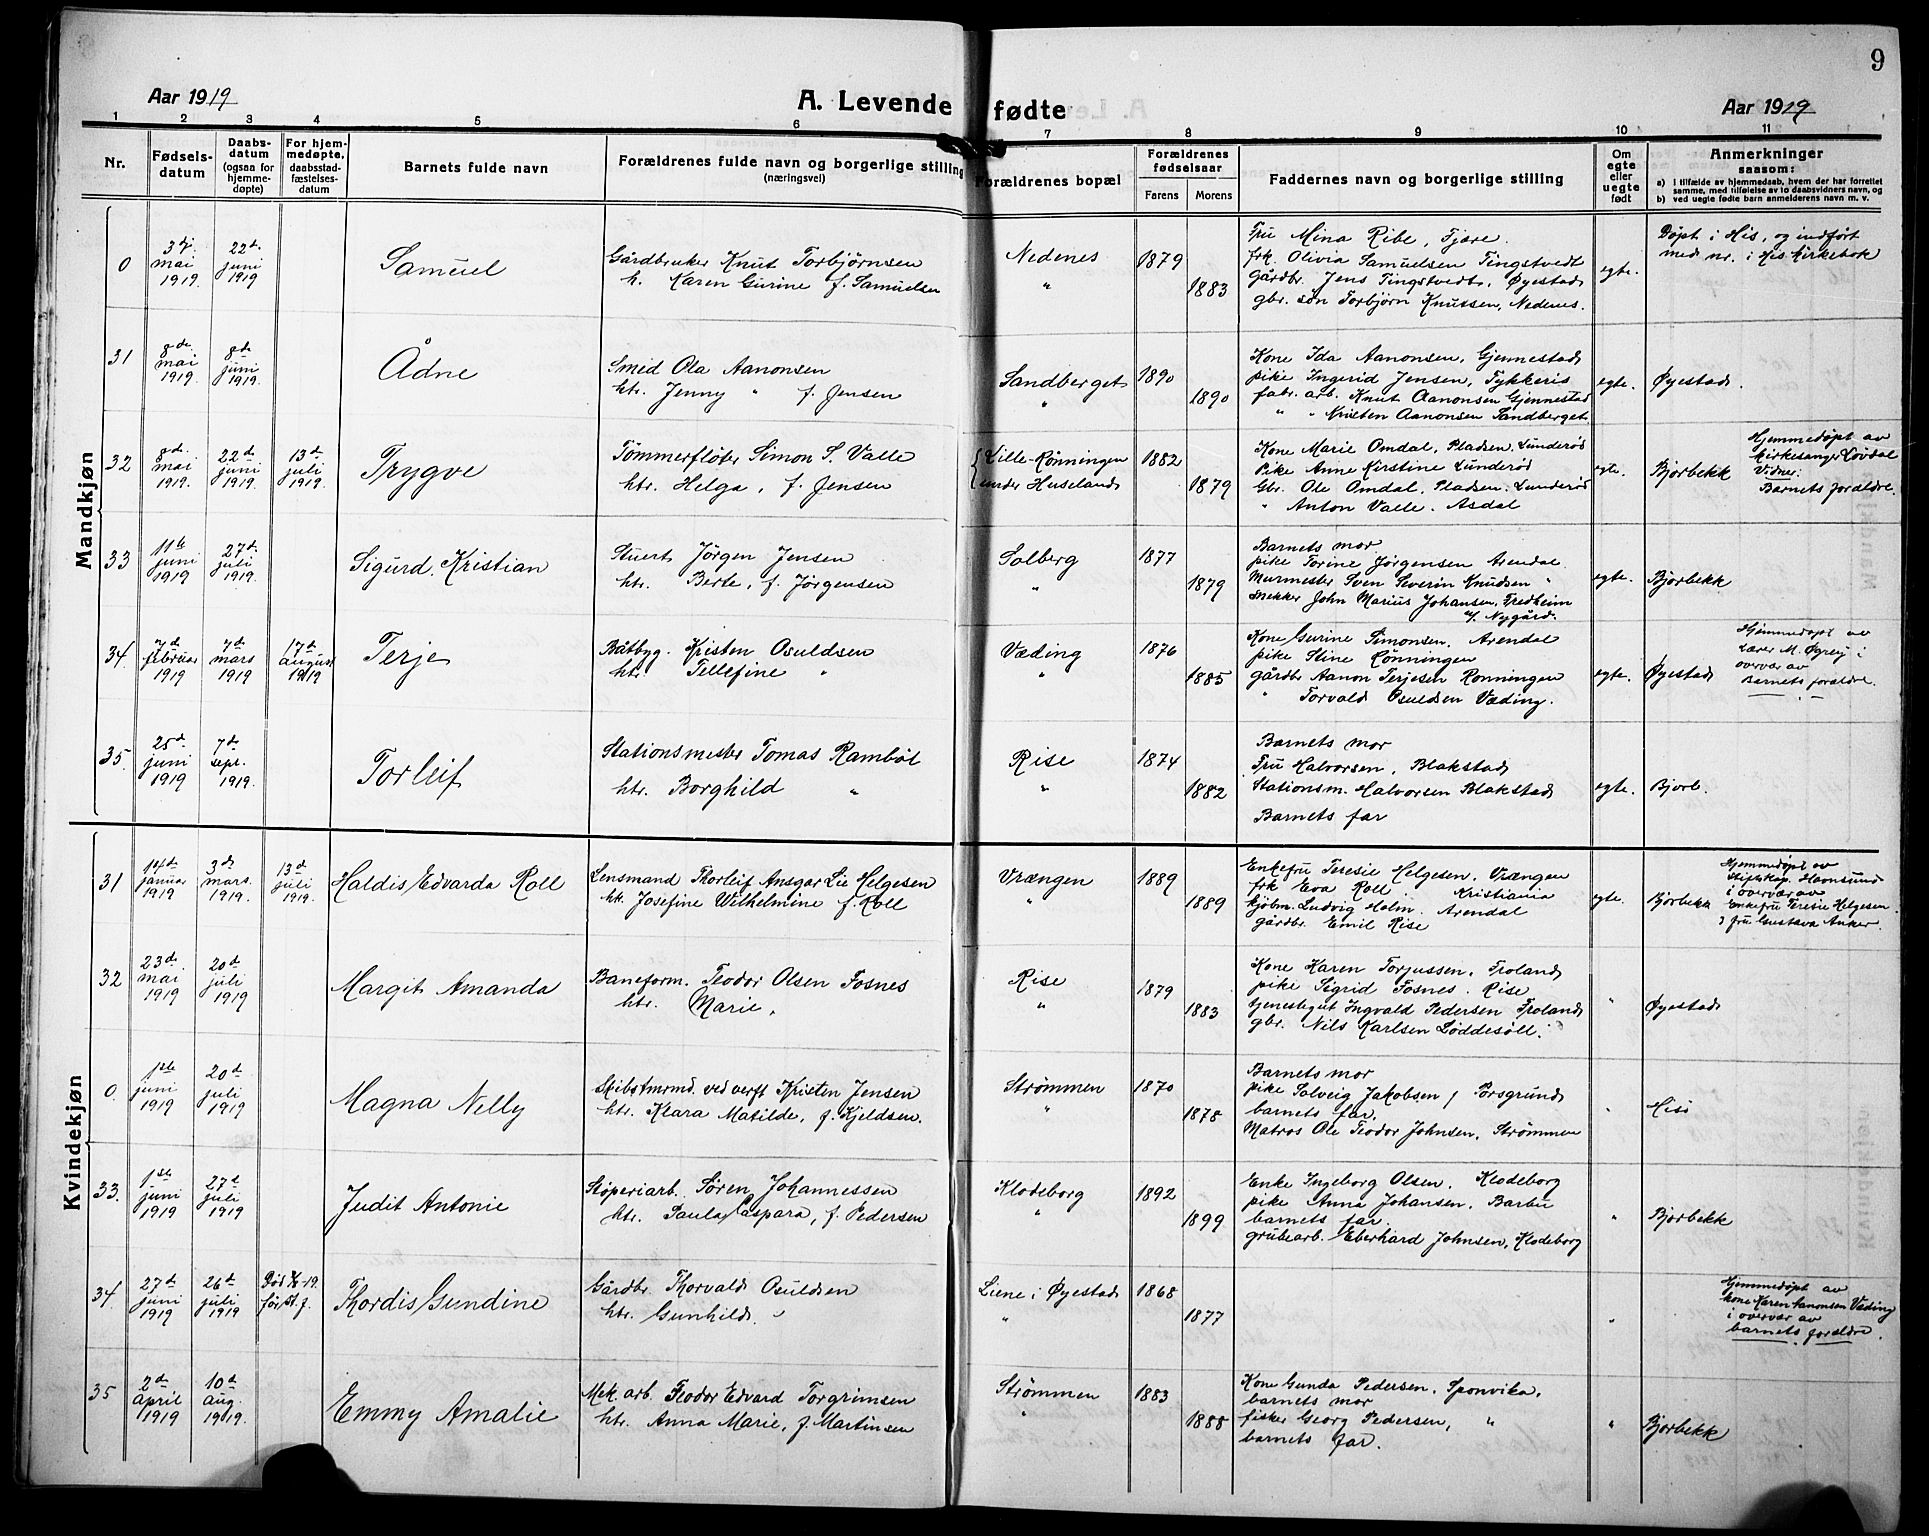 9
Aar 1919
A. Levende fødte
Aar 1919
1 2 3 4 5 6 7 8 9 10 11
Nr.
Fødsels-
datum
Daabs-
datum
(ogsaa for
hjemme-
døpte)
For hjem-
medøpte,
daabsstad-
fæstelses-
datum
Barnets fulde navn
Forældrenes fulde navn og borgerlige stilling
(næringsvei)
Forældrenes bopæl
Forældrenes
fødselsaar
Farens Morens
Faddernes navn og borgerlige stilling
Om
egte
eller
uegte
født
Anmerkninger
saasom:
a) i tilfælde av hjemmedaab, hvem der har forrettet
samme, med tilføielse av to daabsvidners navn, og
b) ved uegte fødte barn anmelderens navn m. v.
Mandkjøn
0
3dj
mai
1919.
22de
juni
1919.
Samuel
Gårdbruker Knut Torbjørnsen
h. Karen Gurine f. Samuelsen
Nedenes
"
1879
1883
Fru Mina Ribe, Fjære.
frk. Olivia Samuelsen Tingstvedt
gårdbr. Jens Tingstvedt, Øyestad
gbr. søn Torbjørn Knutsen, Nedenes.
egte.
Døpt i His, og indført
med nr. i His kirkebok
31
8de
mai
1919.
8de
juni
1919.
Ådne
Smed Ola Aanonsen
htr. Jenny " f. Jensen
Sandberget
"
1890
1890
Kone Ida Aanonsen, Gjennestad
pike Ingerid Jensen, Tykkeris
fabr. arb. Knut Aanonsen Gjennestad
" " Kristen Aanonsen Sandberget
egte.
Øyestad.
32
8de
mai
1919.
22de
juni
1919.
13de
juli
1919.
Trygve
Tømmerfløter Simon S. Valle
htr. Helga, f. Jensen
Lille-Rønningen
under Huseland
1882
1879
Kone Marie Omdal, Pladsen. Lunderød
Pike Anne Kirstine Lunderød
Gbr. Ole Omdal, Pladsen. Lunderød
" Anton Valle. Asdal
egte.
Bjorbekk
Hjemmedøpt av
kirkesanger Løvdal
Vidner:
Barnets foreldre.
33
11te
juni
1919
27de
juli
1919.
Sigurd. Kristian
Stuert Jørgen Jensen
htr. Berte, f. Jørgensen
Solberg
"
1877
1879
Barnets mor
pike Torine Jørgensen Arendal.
Murmester Sven Severin Knudsen "
Snekker John Marius Johansen, Fredheim
v/ Nygård.
egte.
Bjorbekk
34.
7de
februar
1919
7de
mars
1919
17de
august
1919
Terje
Båtbyg. Kristen Osuldsen
htr. Tellefine "
Væding
"
1876
1885
Kone Gurine Simonsen. Arendal
pike Stine Rønningen
gårdbr Aanon Terjesen Rønningen
" Torvald Osuldsen Væding.
egte.
Øyestad
Hjemmedøpt av
Lærer M. Øgrey i
overvær av
Barnets foreldre.
35.
25de
juni
1919
7de
sept.
1919.
Torleif
Stationsmester Tomas Rambøl
htr. Borghild "
Rise
"
1874
1882
Barnets mor
Fru Halvorsen, Blakstad
Stationsm. Halvorsen Blakstad
Barnets far
egte.
Bjorb.
Kvindekjøn
31
14de
januar
1919
3de
mars.
1919.
13de
juli
1919.
Haldis Edvarda Roll
Lensmand Thorleif Ansgar Lie Helgesen
htr. Josefine Wilhelmine f. Roll
Vrængen
"
1889
1889
Enkefru Teresie Helgesen. Vrængen
frk Eva Roll. Kristiania
kjøbm. Ludvig Holm. Arendal
gårdbr. Emil Rise
egte.
Bjorbekk
Hjemmedøpt av
Stiftskap. Havnsund
i overvær av
Enkefru Teresie Helgesen
& fru Gustava Anker.
32
23de
mai
1919
20de
juli
1919
Margit Amanda
Baneform. Teodor Olsen Fosnes
htr. Marie "
Rise
"
1879
1883
Kone Karen Torjussen. Froland
pike Sigrid Fosnes. Rise
tjenestegut Ingvald Pedersen Froland
gbr. Nils Karlsen Løddesøll.
"
Øyestad
0.
1ste
juni
1919
20de
juli
1919
Magna Nelly
Skibstmrmd. ved verft Kristen Jensen
htr. Klara Matilde, f. Kjeldsen.
Strømmen
"
1870
1878
Barnets mor
pike Solveig Jakobsen / Porsgrund
barnets far.
Matros Ole Teodor Johnsen, Strømmen
"
Hisø
33.
1ste
juni
1919
27de
juli
1919
Judit Antonie
Støperiarb. Søren Johannessen
htr. Paula Caspara, f. Pedersen
Klodeborg
"
1892
1899
Enke Ingeborg Olsen. Klodeborg
pike Anna Johansen, Barbu
barnets far.
grubearb. Eberhard Johnsen, Klodeborg
"
Bjorbekk
34.
27de
juni
1919
26de
juli
1919
Thordis Gundine
Gårdbr. Thorvald Osuldsen
htr. Gunhild. "
Liene i Øyestad
"
1868
1877
"
Hjemmedøpt av
kone Karen Aanonsen Væding
i overvær av
barnets foreldre.
35
2de
April
1919
10de
Aug.
1919.
Emmy Amalie
Mek. arb. Teodor Edvard Torgrimsen
htr. Anna Marie, f. Martinsen
Strømmen
"
1883
1888
Kone Gunda Pedersen. Sponvika.
barnets mor
fisker Georg Pedersen, "
barnets far.
"
Bjorbekk